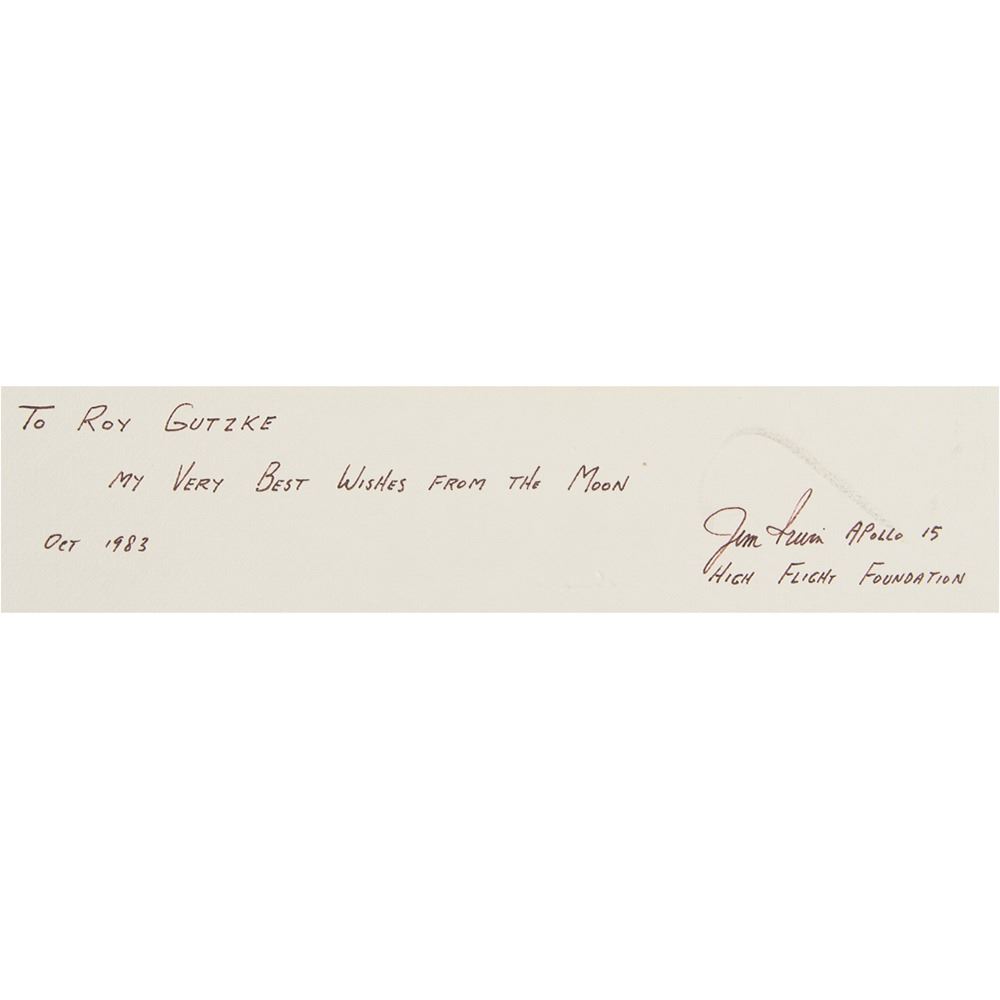 To Roy Gutzke
My Very Best Wishes from the Moon
Oct 1983
Jim Irwin Apollo 15
High Flight Foundation